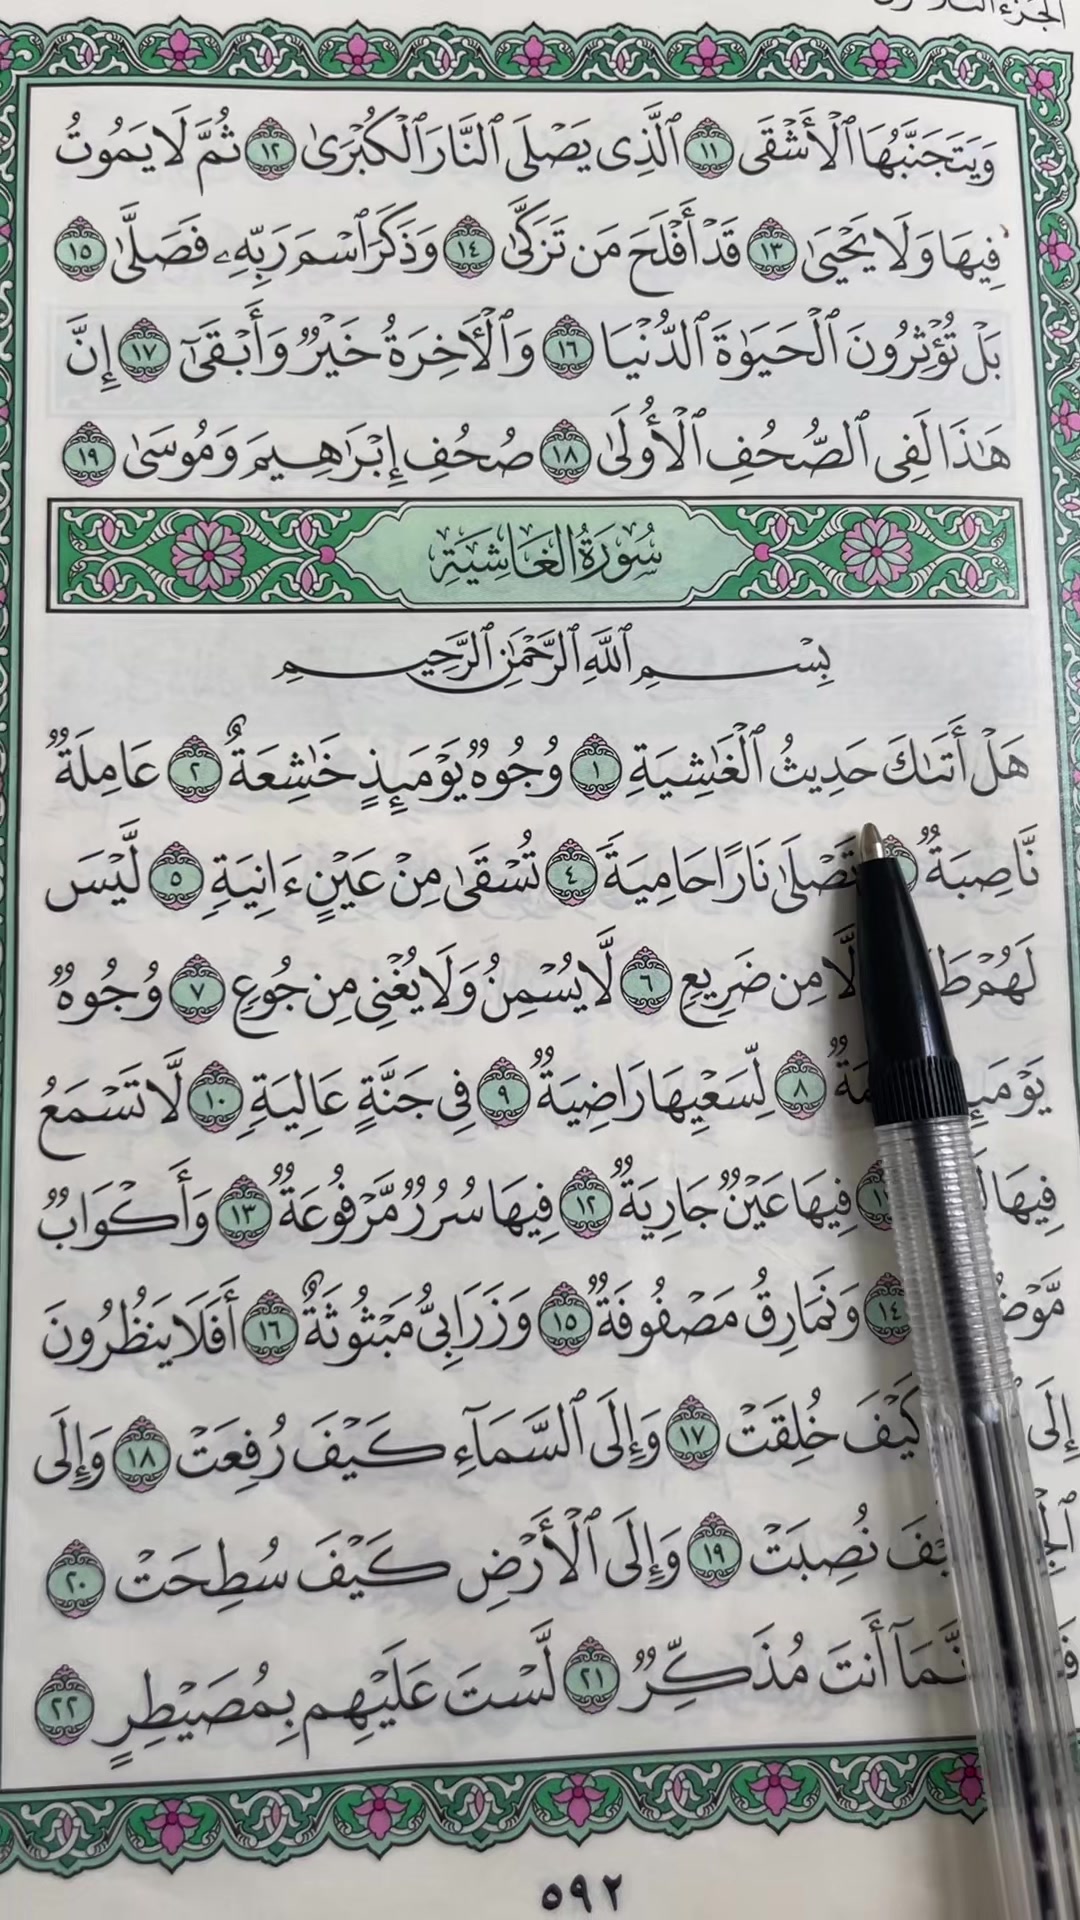 وَيَتَجَنَّبُهَا ٱلْأَشْقَى ١١ ٱلَّذِى يَصْلَى ٱلنَّارَ ٱلْكُبْرَىٰ ١٢ ثُمَّ لَا يَمُوتُ
فِيهَا وَلَا يَحْيَىٰ ١٣ قَدْ أَفْلَحَ مَن تَزَكَّىٰ ١٤ وَذَكَرَ ٱسْمَ رَبِّهِۦ فَصَلَّىٰ ١٥
بَلْ تُؤْثِرُونَ ٱلْحَيَوٰةَ ٱلدُّنْيَا ١٦ وَٱلْأَخِرَةُ خَيْرٌ وَأَبْقَىٰٓ ١٧ إِنَّ
هَٰذَا لَفِى ٱلصُّحُفِ ٱلْأُولَىٰ ١٨ صُحُفِ إِبْرَٰهِيمَ وَمُوسَىٰ ١٩
سُورَةُ الغَاشِيَةِ
بِسْمِ ٱللَّهِ ٱلرَّحْمَٰنِ ٱلرَّحِيمِ
هَلْ أَتَىٰكَ حَدِيثُ ٱلْغَٰشِيَةِ ١ وُجُوهٌ يَوْمَئِذٍ خَٰشِعَةٌ ٢ عَامِلَةٌ
نَّاصِبَةٌ تَصْلَىٰ نَارًا حَامِيَةً ٤ تُسْقَىٰ مِنْ عَيْنٍ ءَانِيَةٍ ٥ لَّيْسَ
لَهُمْ مِن ضَرِيعٍ ٦ لَّا يُسْمِنُ وَلَا يُغْنِى مِن جُوعٍ ٧ وُجُوهٌ
٨ لِّسَعْيِهَا رَاضِيَةٌ ٩ فِى جَنَّةٍ عَالِيَةٍ ١٠ لَّا تَسْمَعُ
فِيهَا فِيهَا عَيْنٌ جَارِيَةٌ ١٢ فِيهَا سُرُرٌ مَّرْفُوعَةٌ ١٣ وَأَكْوَابٌ
١٤ وَنَمَارِقُ مَصْفُوفَةٌ ١٥ وَزَرَابِىُّ مَبْثُوثَةٌ ١٦ أَفَلَا يَنظُرُونَ
إِلَى كَيْفَ خُلِقَتْ ١٧ وَإِلَى ٱلسَّمَآءِ كَيْفَ رُفِعَتْ ١٨ وَإِلَى
نُصِبَتْ ١٩ وَإِلَى ٱلْأَرْضِ كَيْفَ سُطِحَتْ ٢٠
أَنتَ مُذَكِّرٌ ٢١ لَّسْتَ عَلَيْهِم بِمُصَيْطِرٍ ٢٢
٥٩٢